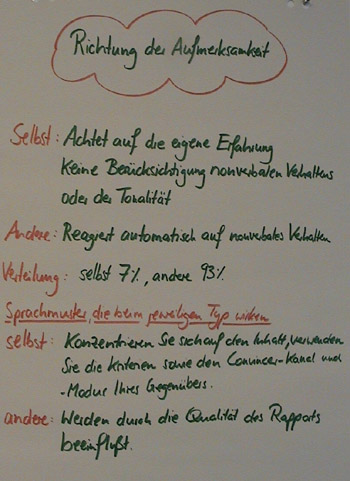 Richtung der Aufmerksamkeit
Selbst: Achtet auf die eigene Erfahrung
Keine Berücksichtigung nonverbalen Verhaltens
oder der Tonalität
Andere: Reagiert automatisch auf nonverbales Verhalten
Verteilung: selbst 7%, andere 93%
Sprachmuster, die beim jeweiligen Typ wirken
selbst: Konzentrieren Sie sich auf den Inhalt, verwenden
Sie die Kriterien sowie den Convincer-Kanal und
-Modus Ihres Gegenübers.
andere: Werden durch die Qualität des Rapports
beeinflußt.